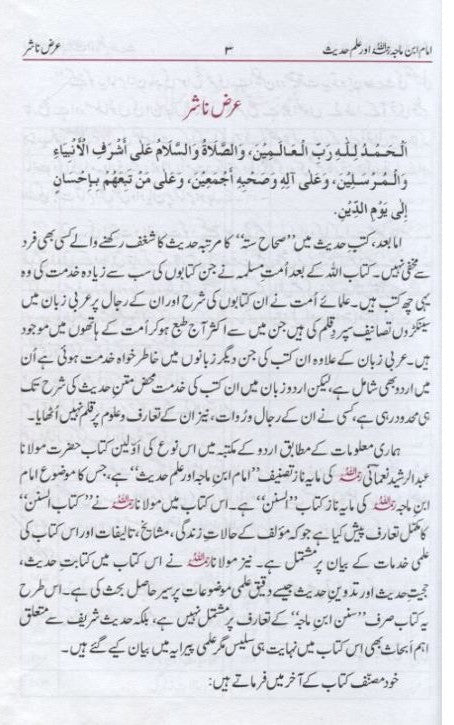 امام ابن ماجہ رحمہ اللہ اور علم حدیث ۳ عرض ناشر
عرض ناشر
اَلْحَمْدُ لِلّٰهِ رَبِّ الْعَالَمِيْنَ، وَالصَّلَاةُ وَالسَّلَامُ عَلٰى أَشْرَفِ الْأَنْبِيَاءِ
وَالْمُرْسَلِيْنَ، وَعَلٰى آلِهٖ وَصَحْبِهٖ أَجْمَعِيْنَ، وَعَلٰى مَنْ تَبِعَهُمْ بِإِحْسَانٍ
إِلٰى يَوْمِ الدِّيْنِ.
اما بعد، کتبِ حدیث میں ”صحاح ستہ“ کا مرتبہ حدیث کا شغف رکھنے والے کسی بھی فرد
سے مخفی نہیں۔ کتاب اللہ کے بعد اُمتِ مسلمہ نے جن کتابوں کی سب سے زیادہ خدمت کی وہ
یہی چھ کتب ہیں۔ علمائے اُمت نے ان کتابوں کی شرح اور ان کے رجال پر عربی زبان میں
سینکڑوں تصانیف سپردِ قلم کی ہیں جن میں سے اکثر آج طبع ہو کر اُمت کے ہاتھوں میں موجود
ہیں۔ عربی زبان کے علاوہ ان کتب کی جن دیگر زبانوں میں خاطر خواہ خدمت ہوئی ہے اُن
میں اردو بھی شامل ہے، لیکن اردو زبان میں ان کتب کی خدمت محض متنِ حدیث کی شرح تک
ہی محدود رہی ہے، کسی نے ان کے رجال و رُوات، نیز ان کے تعارف و علوم پر قلم نہیں اُٹھایا۔
ہماری معلومات کے مطابق اردو کے مکتبہ میں اس نوع کی اوّلین کتاب حضرت مولانا
عبدالرشید نعمانی رحمہ اللہ کی مایہ ناز تصنیف ”امام ابن ماجہ اور علم حدیث“ ہے، جس کا موضوع امام
ابنِ ماجہ رحمہ اللہ کی مایہ ناز کتاب ”السنن“ ہے۔ اس کتاب میں مولانا رحمہ اللہ نے ”کتاب السنن“
کا مکمل تعارف پیش کیا ہے جو کہ مؤلف کے حالاتِ زندگی، مشائخ، تالیفات اور اس کتاب کی
علمی خدمات کے بیان پر مشتمل ہے۔ نیز مولانا رحمہ اللہ نے اس کتاب میں کتابتِ حدیث،
حجیتِ حدیث اور تدوینِ حدیث جیسے دقیق علمی موضوعات پر سیر حاصل بحث کی ہے۔ اس طرح
یہ کتاب صرف ”سنن ابنِ ماجہ“ کے تعارف پر مشتمل نہیں ہے، بلکہ حدیث شریف سے متعلق
اہم اَبحاث بھی اس کتاب میں نہایت ہی سلیس مگر علمی پیرایہ میں بیان کیے گئے ہیں۔
خود مصنّف کتاب کے آخر میں فرماتے ہیں: